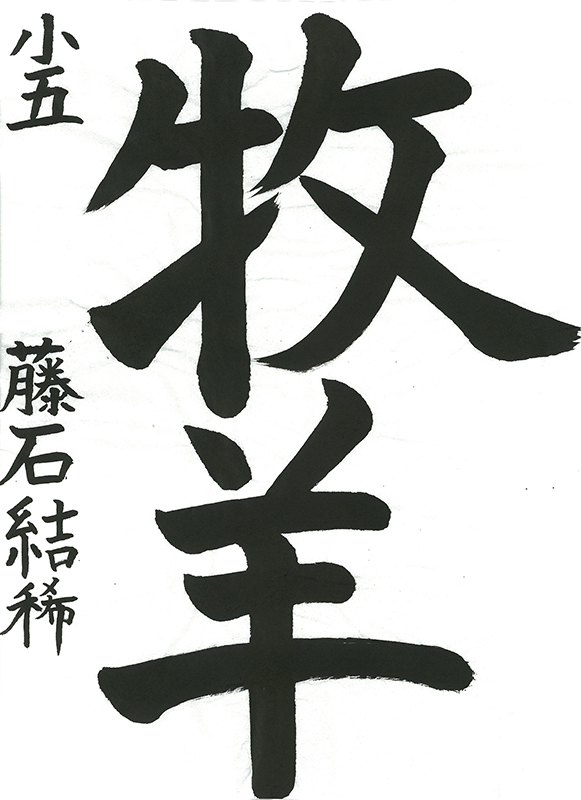 牧羊
小五 藤石結稀